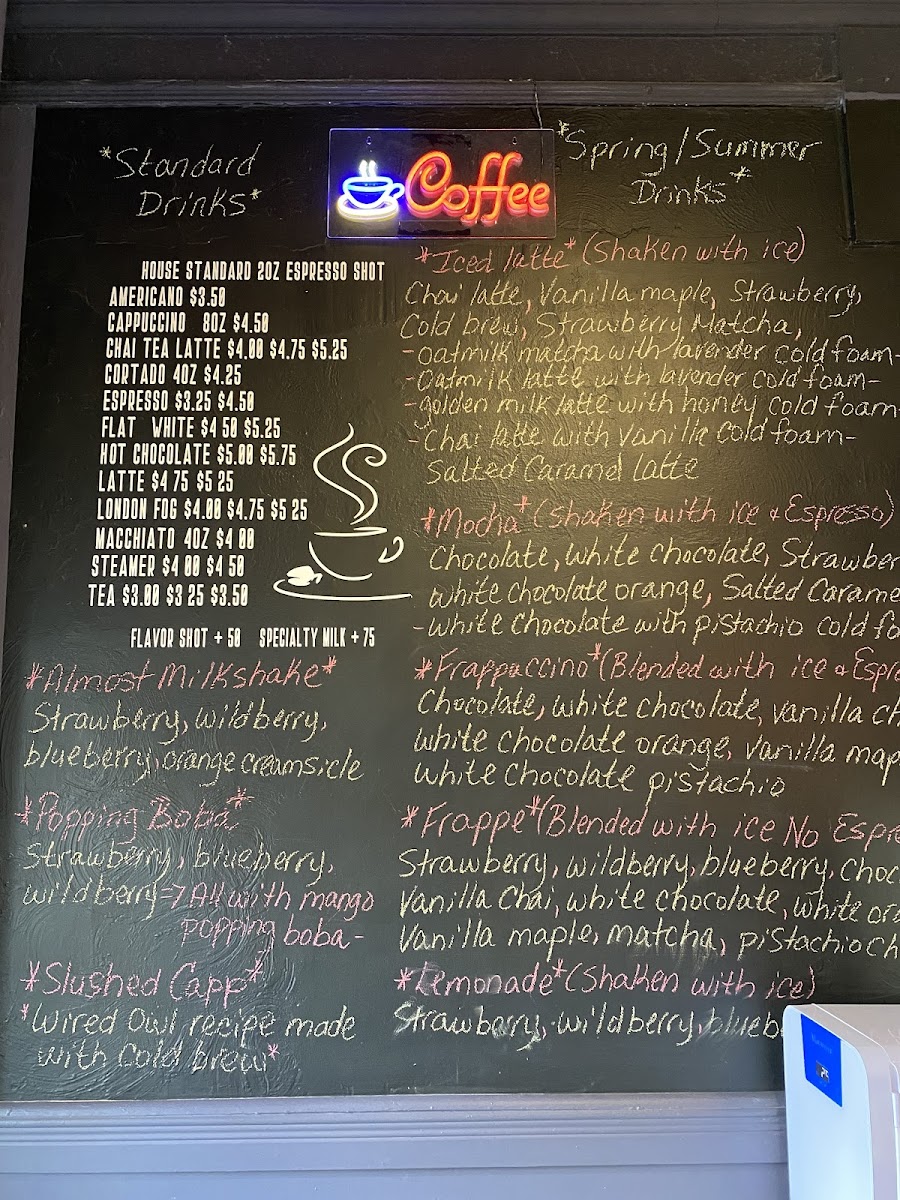 *Standard
Drinks*
HOUSE STANDARD 2OZ ESPRESSO SHOT
AMERICANO $3.50
CAPPUCCINO 8OZ $4.50
CHAI TEA LATTE $4.00 $4.75 $5.25
CORTADO 4OZ $4.25
ESPRESSO $3.25 $4.50
FLAT WHITE $4 50 $5.25
HOT CHOCOLATE $5.00 $5.75
LATTE $4 75 $5 25
LONDON FOG $4.00 $4.75 $5 25
MACCHIATO 4OZ $4 00
STEAMER $4 00 $4 50
TEA $3.00 $3 25 $3.50
FLAVOR SHOT + 50 SPECIALTY MILK + 75
*Almost Milkshake*
Strawberry, wildberry,
blueberry, orange creamsicle
*Popping Boba*
Strawberry, blueberry,
wildberry => All with mango
popping boba-
*Slushed Capp*
*Wired Owl recipe made
with Cold brew*
Coffee
*Spring/Summer
Drinks*
*Iced latte* (Shaken with ice)
Chai latte, Vanilla maple, Strawberry,
Cold brew, Strawberry Matcha,
-oatmilk matcha with lavender cold foam-
-Oatmilk latte with lavender cold foam-
-golden milk latte with honey cold foam
-Chai latte with vanilla cold foam-
Salted Caramel latte
*Mocha* (Shaken with ice & Espresso)
Chocolate, white chocolate, Strawber
white chocolate orange, Salted Carame
-white Chocolate with pistachio cold fo
*Frappuccino* (Blended with ice & Espre
Chocolate, white chocolate, vanilla ch
white chocolate orange, vanilla map
white Chocolate pistachio
*Frappe* (Blended with ice No Espre
Strawberry, wildberry, blueberry, choc
Vanilla Chai, white chocolate, white ora
Vanilla maple, matcha, pistachio ch
*Lemonade* (Shaken with ice)
Strawberry, wildberry, blueb